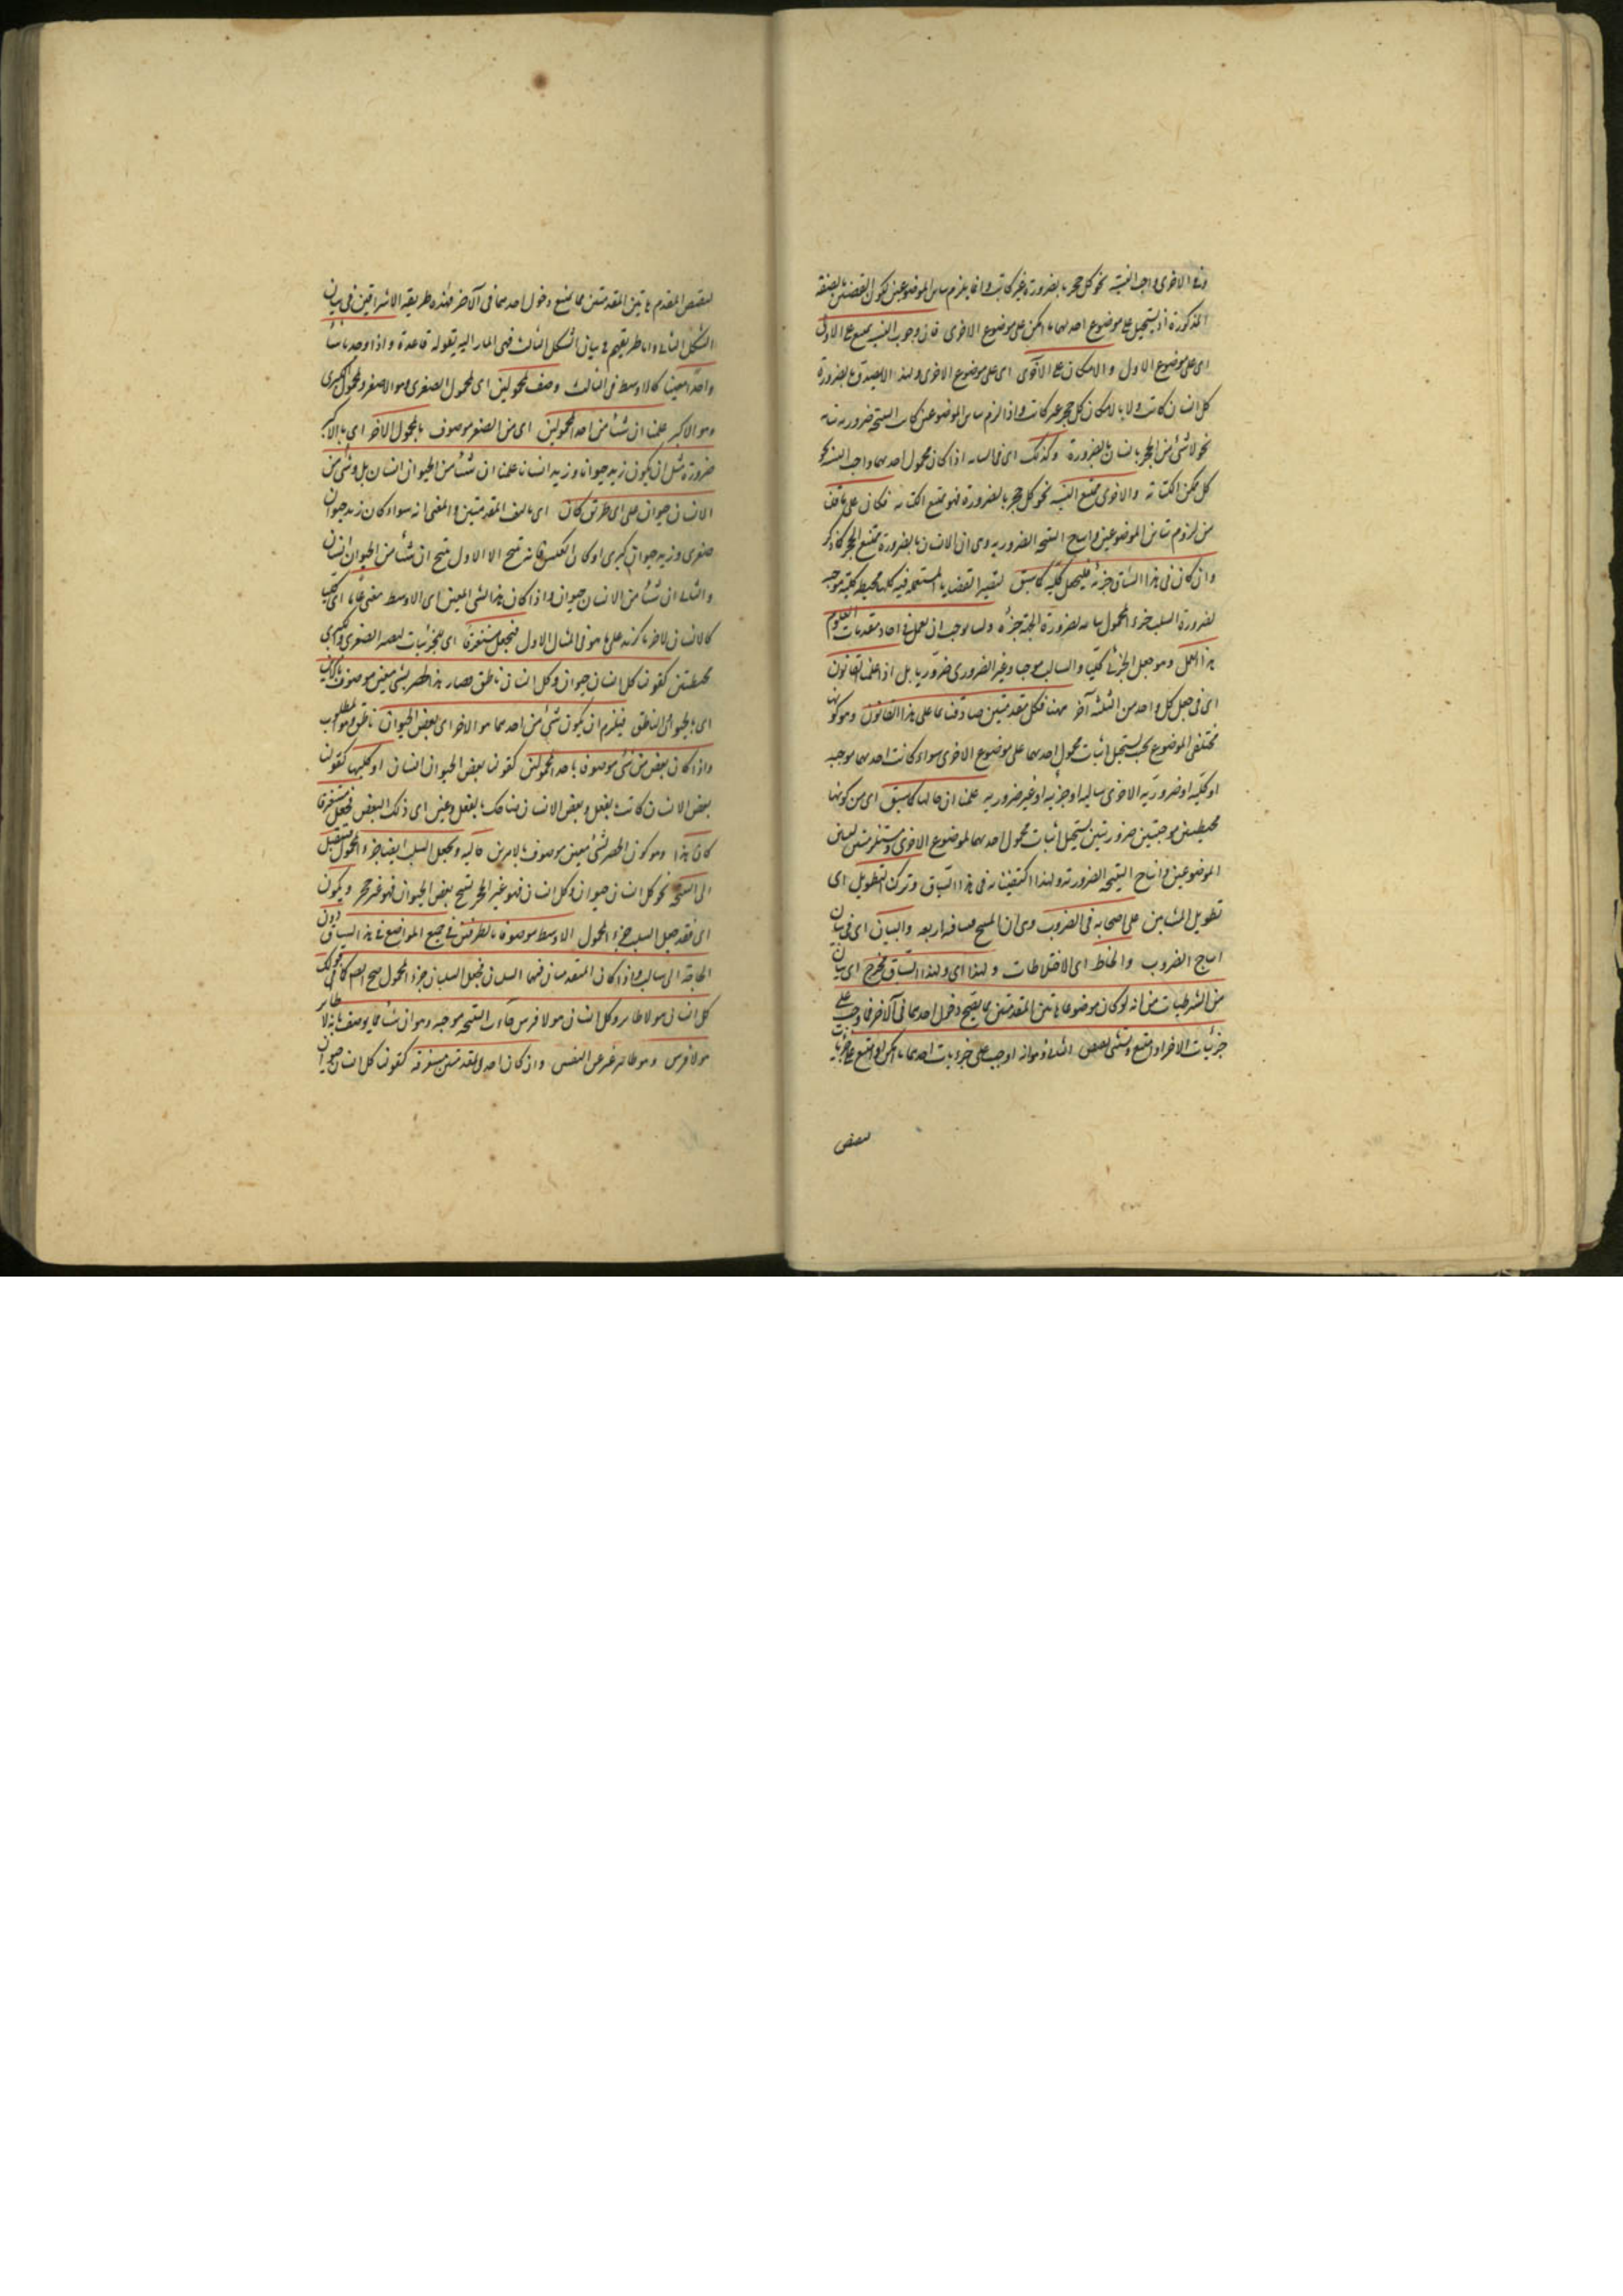 وفى الاخرى واجب النسبة نحو كل حجر بالضرورة غير كاتب وانما يلزم تباين الموضوعين لكون القضيتين بالصفة
المذكورة اذ يستحيل على موضوع احديهما ما امكن على موضوع الاخرى فان وجوب النسبة يمتنع على الاولى
اى على موضوع الاول والامكان على الاخرى اى على موضوع الاخرى ولهذا لا يصدق بالضرورة
كل انسان كاتب ولا بالامكان كل حجر غير كاتب واذا لزم تباين الموضوعين كانت النتيجة ضرورية بتاتة
نحو لا شئ من الحجر بانسان بالضرورة وكذلك اى فى السياق اذا كان محمول احديهما واجب النسبة نحو
كل ممكن الكتابة والاخرى ممتنع النسبة نحو كل حجر بالضرورة فهو ممتنع الكتابة فكان على ما قلنا
من لزوم تباين الموضوعين وانتاج النتيجة الضرورية وهى ان الانسان بالضرورة ممتنع الحجر كما ذكر
وان كان فى هذا السياق جزئية فليجعل كلية كما سبق لتصير القضايا المستعملة فيه كلها محيطة كلية موجبة
لضرورة السلب جزء المحمول بتاتة لضرورة الجهة جزئه ولما يوجب ان يعمل فى احاد مقدمات العلوم
هذا العمل وهو جعل الجزئى كليا والسالب موجبا وغير الضرورى ضروريا بل اذا علمنا القانون
اى فى جعل كل واحد من الثلثة آخر مهنا فكل مقدمتين صادفناهما على هذا القانون وهو كونها
مختلفى الموضوع بحيث يستحيل اثبات محمول احديهما على موضوع الاخرى سواء كانت احديهما موجبة
او كلية او ضرورية الاخرى سالبة او جزئية او غير ضرورية علمنا ان حالها كما سبق اى من كونها
محيطتين موجبتين ضروريتين يستحيل اثبات محمول احديهما لموضوع الاخرى ومستلزمتين لتباين
الموضوعين وانتاج النتيجة الضرورية ولهذا اكتفينا به فى هذا السياق وترك التطويل اى
تطويل المشائين على اصحابه فى الضروب وهى ان المنتج فيها اربعة والبيان اى فى بيان
انتاج الضروب والخلط اى الاختلاطات ولهذا اى ولهذا السياق مخرج اى بيان
من الشرطيات من انه لو كان موضوعا هاتين المقدمتين مما يصح دخول احدهما فى الآخر فما وجب على
جزئيات الاخر او امتنع ويستثنى لنقيض التالى وهو انه اوجب على جزئيات احدهما ما امكن او امتنع على جزئيات
لنقيض
لنقيض المقدم هاتين المقدمتين مما يمتنع دخول احدهما فى الآخر فهذه طريقة الاشراقيين فى بيان
الشكل الثانى واما طريقهم فى بيان الشكل الثالث فهى المشار اليه بقوله قاعدة واذا وجدنا شيئا
واحدا معينا كالاوسط فى الثالث وصف بمحمولين اى بمحمول الصغرى وهو الاصغر ومحمول الكبرى
وهو الاكبر علمنا ان شيئا من احد المحمولين اى من الصغر موصوف بالمحمول الاخر اى بالاكبر
ضرورة مثل ان يكون زيد حيوانا وزيد انسانا علمنا ان شيئا من الحيوان انسان بل وشئ من
الانسان حيوان على اى طريق كان اى تاليف المقدمتين والمعنى انه سواء كان زيد حيوان
صغرى وزيد حيوان كبرى او كان بالعكس فانه ينتج الا ان الاول ينتج ان شيئا من الحيوان انسان
والثانى ان شيئا من الانسان حيوان واذا كان هذا الشئ المعين اى الاوسط معنى عاما اى كليا
كالانسان لا جزئيا كزيد على ما هو فى المثال الاول فيجعل مستغرقا اى بجزئيات ليصير الصغرى والكبرى
محيطتين كقولنا كل انسان حيوان وكل انسان ناطق فصار هذا الحصر بشئ معين موصوف بامرين
اى بالحيوان والناطق فيلزم ان يكون شئ من احدهما هو الاخر اى بعض الحيوان ناطق وهو المطلوب
واذا كان بعض من شئ موصوفا باحد المحمولين كقولنا بعض الحيوان انسان او كليهما كقولنا
بعض الانسان كاتب بالفعل وبعض الانسان ضاحك بالفعل وعنى اى ذلك البعض فيجعل مستغرقا
كان هذا وهو كون الحصر لشئ معين موصوف بالامرين حاله ويجعل السلب ايضا جزء المحمول لينتقل
الى النتيجة نحو كل انسان حيوان وكل انسان فهو غير الحجر ينتج بعض الحيوان فهو غير حجر ويكون
اى فقد جعل السلب جزء المحمول الاوسط موصوفا بالطرفين فى جميع المواضع فى هذا السياق دون
الحاجة الى سالب واذا كان المقدمتان فيهما السلبان فجعل السلبان جزء المحمول صح ايضا كما فى قولك
كل انسان هو لا طائر وكل انسان هو لا فرس جآءت النتيجة موجبة وهو ان شيئا مما يوصف بانه لا طائر
هو لا فرس وهو ظاهر غير عن النفس وان كان احدى المقدمتين مستغرقة كقولنا كل انسان حيوان